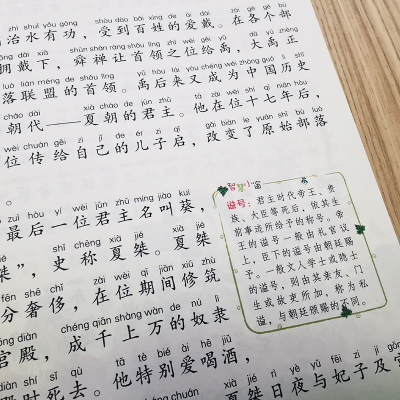 zhì shuǐ yǒu gōng shòu dào bǎi xìng de ài dài zài gè gè bù
治水有功，受到百姓的爱戴。在各个部
yōng dài xià shùn shàn ràng shǒu lǐng zhī wèi gěi yǔ dà yǔ zhèng
拥戴下，舜禅让首领之位给禹，大禹正
luò lián méng de shǒu lǐng yǔ hòu lái yòu chéng wéi zhōng guó lì shǐ
落联盟的首领。禹后来又成为中国历史
cháo dài xià cháo de jūn zhǔ tā zài wèi shí qī nián hòu
朝代——夏朝的君主。他在位十七年后，
wèi chuán gěi zì jǐ de ér zi qǐ gǎi biàn le yuán shǐ bù luò
位传给自己的儿子启，改变了原始部落
zuì hòu yí wèi jūn zhǔ míng jiào kuí
最后一位君主名叫葵，
shǐ chēng xià jié xià jié
桀”，史称夏桀。夏桀
fèn shē chǐ zài wèi qī jiān xiū zhù
分奢侈，在位期间修筑
gōng diàn chéng qiān shàng wàn de nú lì
宫殿，成千上万的奴隶
diàn shí sǐ qù tā tè bié ài hē jiǔ
殿时死去。他特别爱喝酒，
xià jié rì yè yǔ fēi zi jí gōng
夏桀日夜与妃子及宫
谥号：君主时代帝王、贵
族、大臣等死后，依其生
前事迹所给予的称号。帝
王的谥号一般由礼官议
上，臣下的谥号由朝廷赐
予。一般文人学士或隐士
的谥号，则由其亲友、门
生或故吏所加，称为私
谥，与朝廷颁赐的不同。